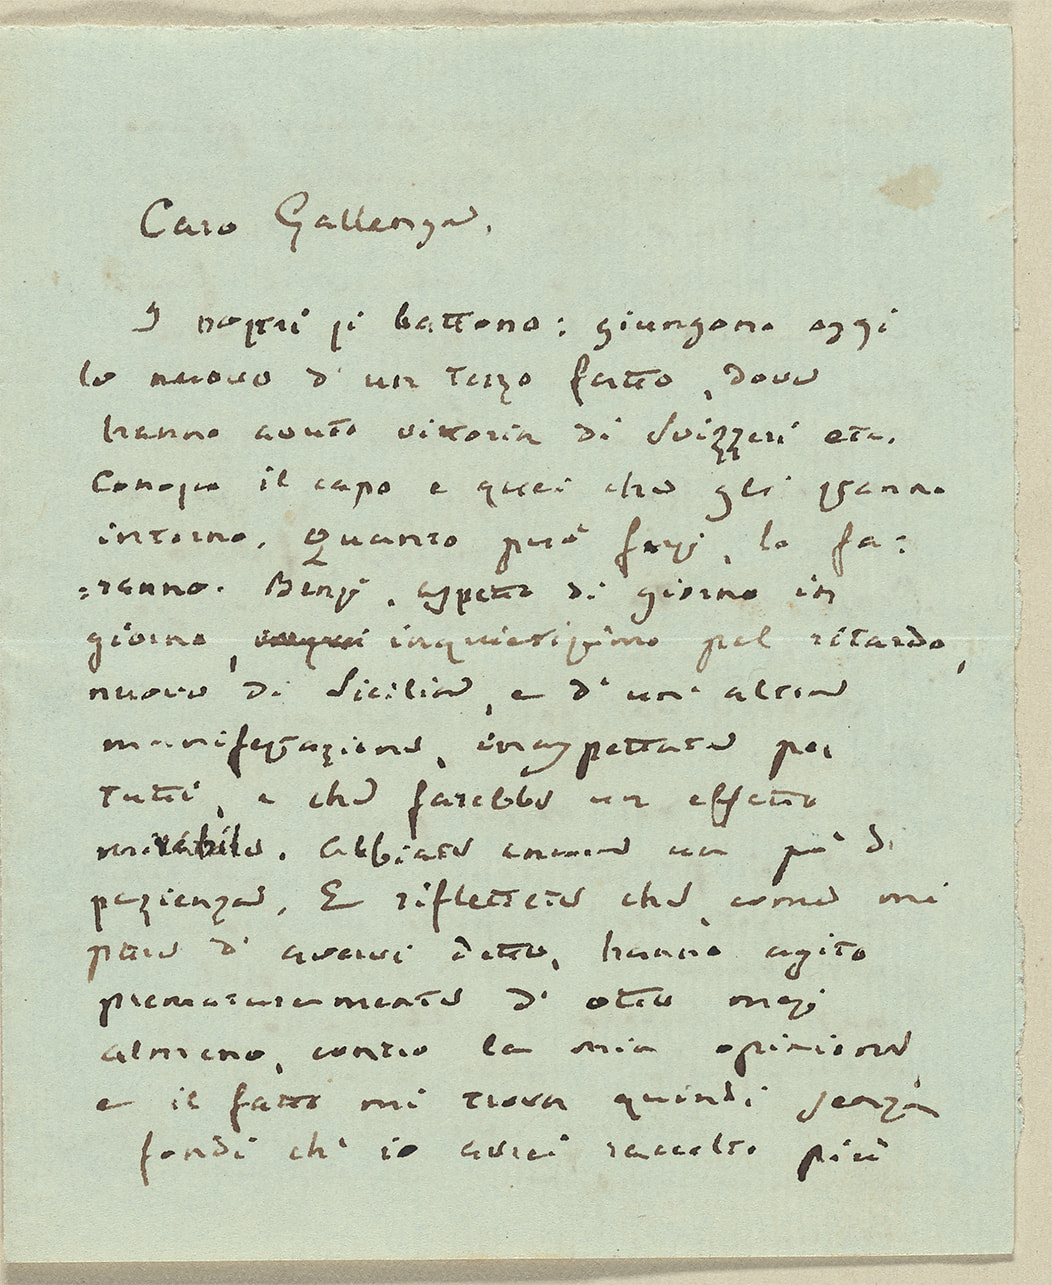 Caro Gallenga,
I nostri si battono: giungono oggi
le nuove d'un terzo fatto, dove
hanno avuto vittoria di Svizzeri etc.
Conosco il capo e quei che gli stanno
intorno. Quanto può farsi, lo fa=
=ranno. Bensì, aspetto di giorno in
giorno, inquietissimo pel ritardo,
nuove di Sicilia, e d'un'altra
manifestazione, inaspettata per
tutti, e che farebbe un effetto
mirabile. Abbiate ancora un po' di
pazienza. E riflettete che, come mi
pare d'avervi detto, hanno agito
prematuramente d'otto mesi
almeno, contro la mia opinione,
e il fatto mi trova quindi senza
fondi ch'io avrei raccolto più